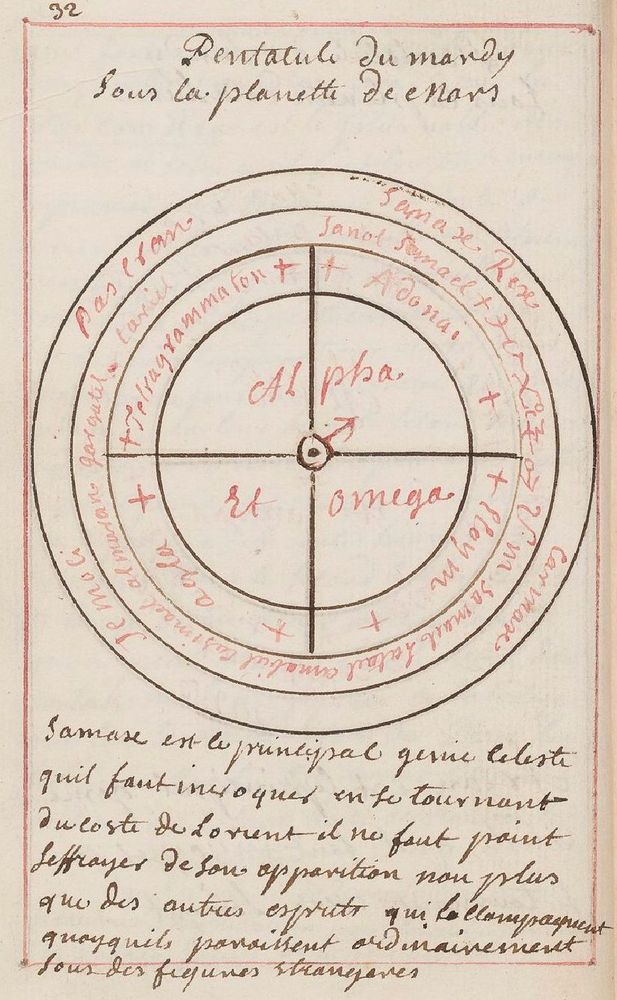 32
Pentatule du mardy
Sous la planette de Mars
Samaxe Rex
Carmaxe
Ismoli
pasfran
Sanct Samael +
Samael Satael amabiel Casimael almavan gargatel Cariel
+ Adonai +
+ Eloym +
+ agla +
+ Tetragrammaton +
Alpha
Et omega
Samaxe est le principal genie Celeste
quil faut invoquer en se tournant
du coste de Lorient il ne faut point
seffrayer de son apparition non plus
que des autres esprits qui
quoyquils paroissent ordinairement
sous des figures etrangeres